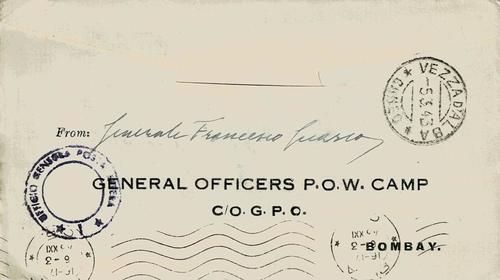 VEZZA D'ALBA * CUNEO *
-5.3.43
From: Generale Francesco Guasco
UFFICIO CENSURA POSTA ESTERA
GENERAL OFFICERS P.O.W. CAMP
C/O. G. P. O.
BOMBAY.